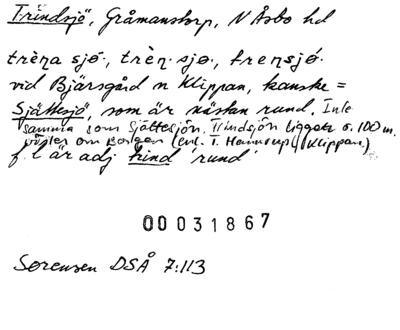 Trindsjö, Gråmanstorp, N Åsbo hd
trèna sjǿ., trèn.sjø., trensjǿ.
vid Bjärsgård n Klippan, kanske =
Sjättesjö, som är nästan rund. Inte
samma som Sjättesjön. Trindsjön ligger c. 100 m.
söder om Borgen (enl. T. Hennrup, Klippan.)
f.l är adj trind 'rund'
00031867
Sørensen DSÅ 7:113